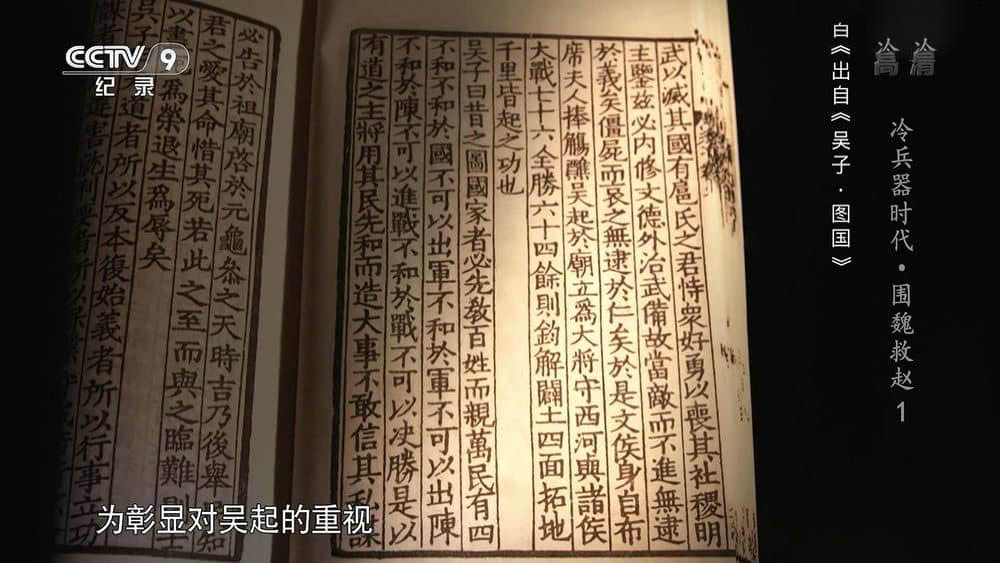 CCTV 9
纪录
冷兵器时代·围魏救赵 1
白《出自《吴子·图国》
武以滅其國有扈氏之君恃衆好勇以喪其社稷明
主鑒兹必内修文德外治武備故當敵而不進無逮
於義矣僵屍而哀之無逮於仁矣於是文侯身自布
席夫人捧觴醮吳起於廟立爲大將守西河與諸侯
大戰七十六全勝六十四餘則鈞解闢土四面拓地
千里皆起之功也
吳子曰昔之圖國家者必先教百姓而親萬民有四
不和不和於國不可以出軍不和於軍不可以出陳
不和於陳不可以進戰不和於戰不可以决勝是以
有道之主將用其民先和而造大事不敢信其私謀
必告於祖廟啓於元龜叅之天時吉乃後舉民知
君之愛其命惜其死若此之至而與之臨難則士
以盡爲榮退生爲辱矣
吳子道者所以反本復始義者所以行事立功
謀者違害就利要者所以保業守成
为彰显对吴起的重视